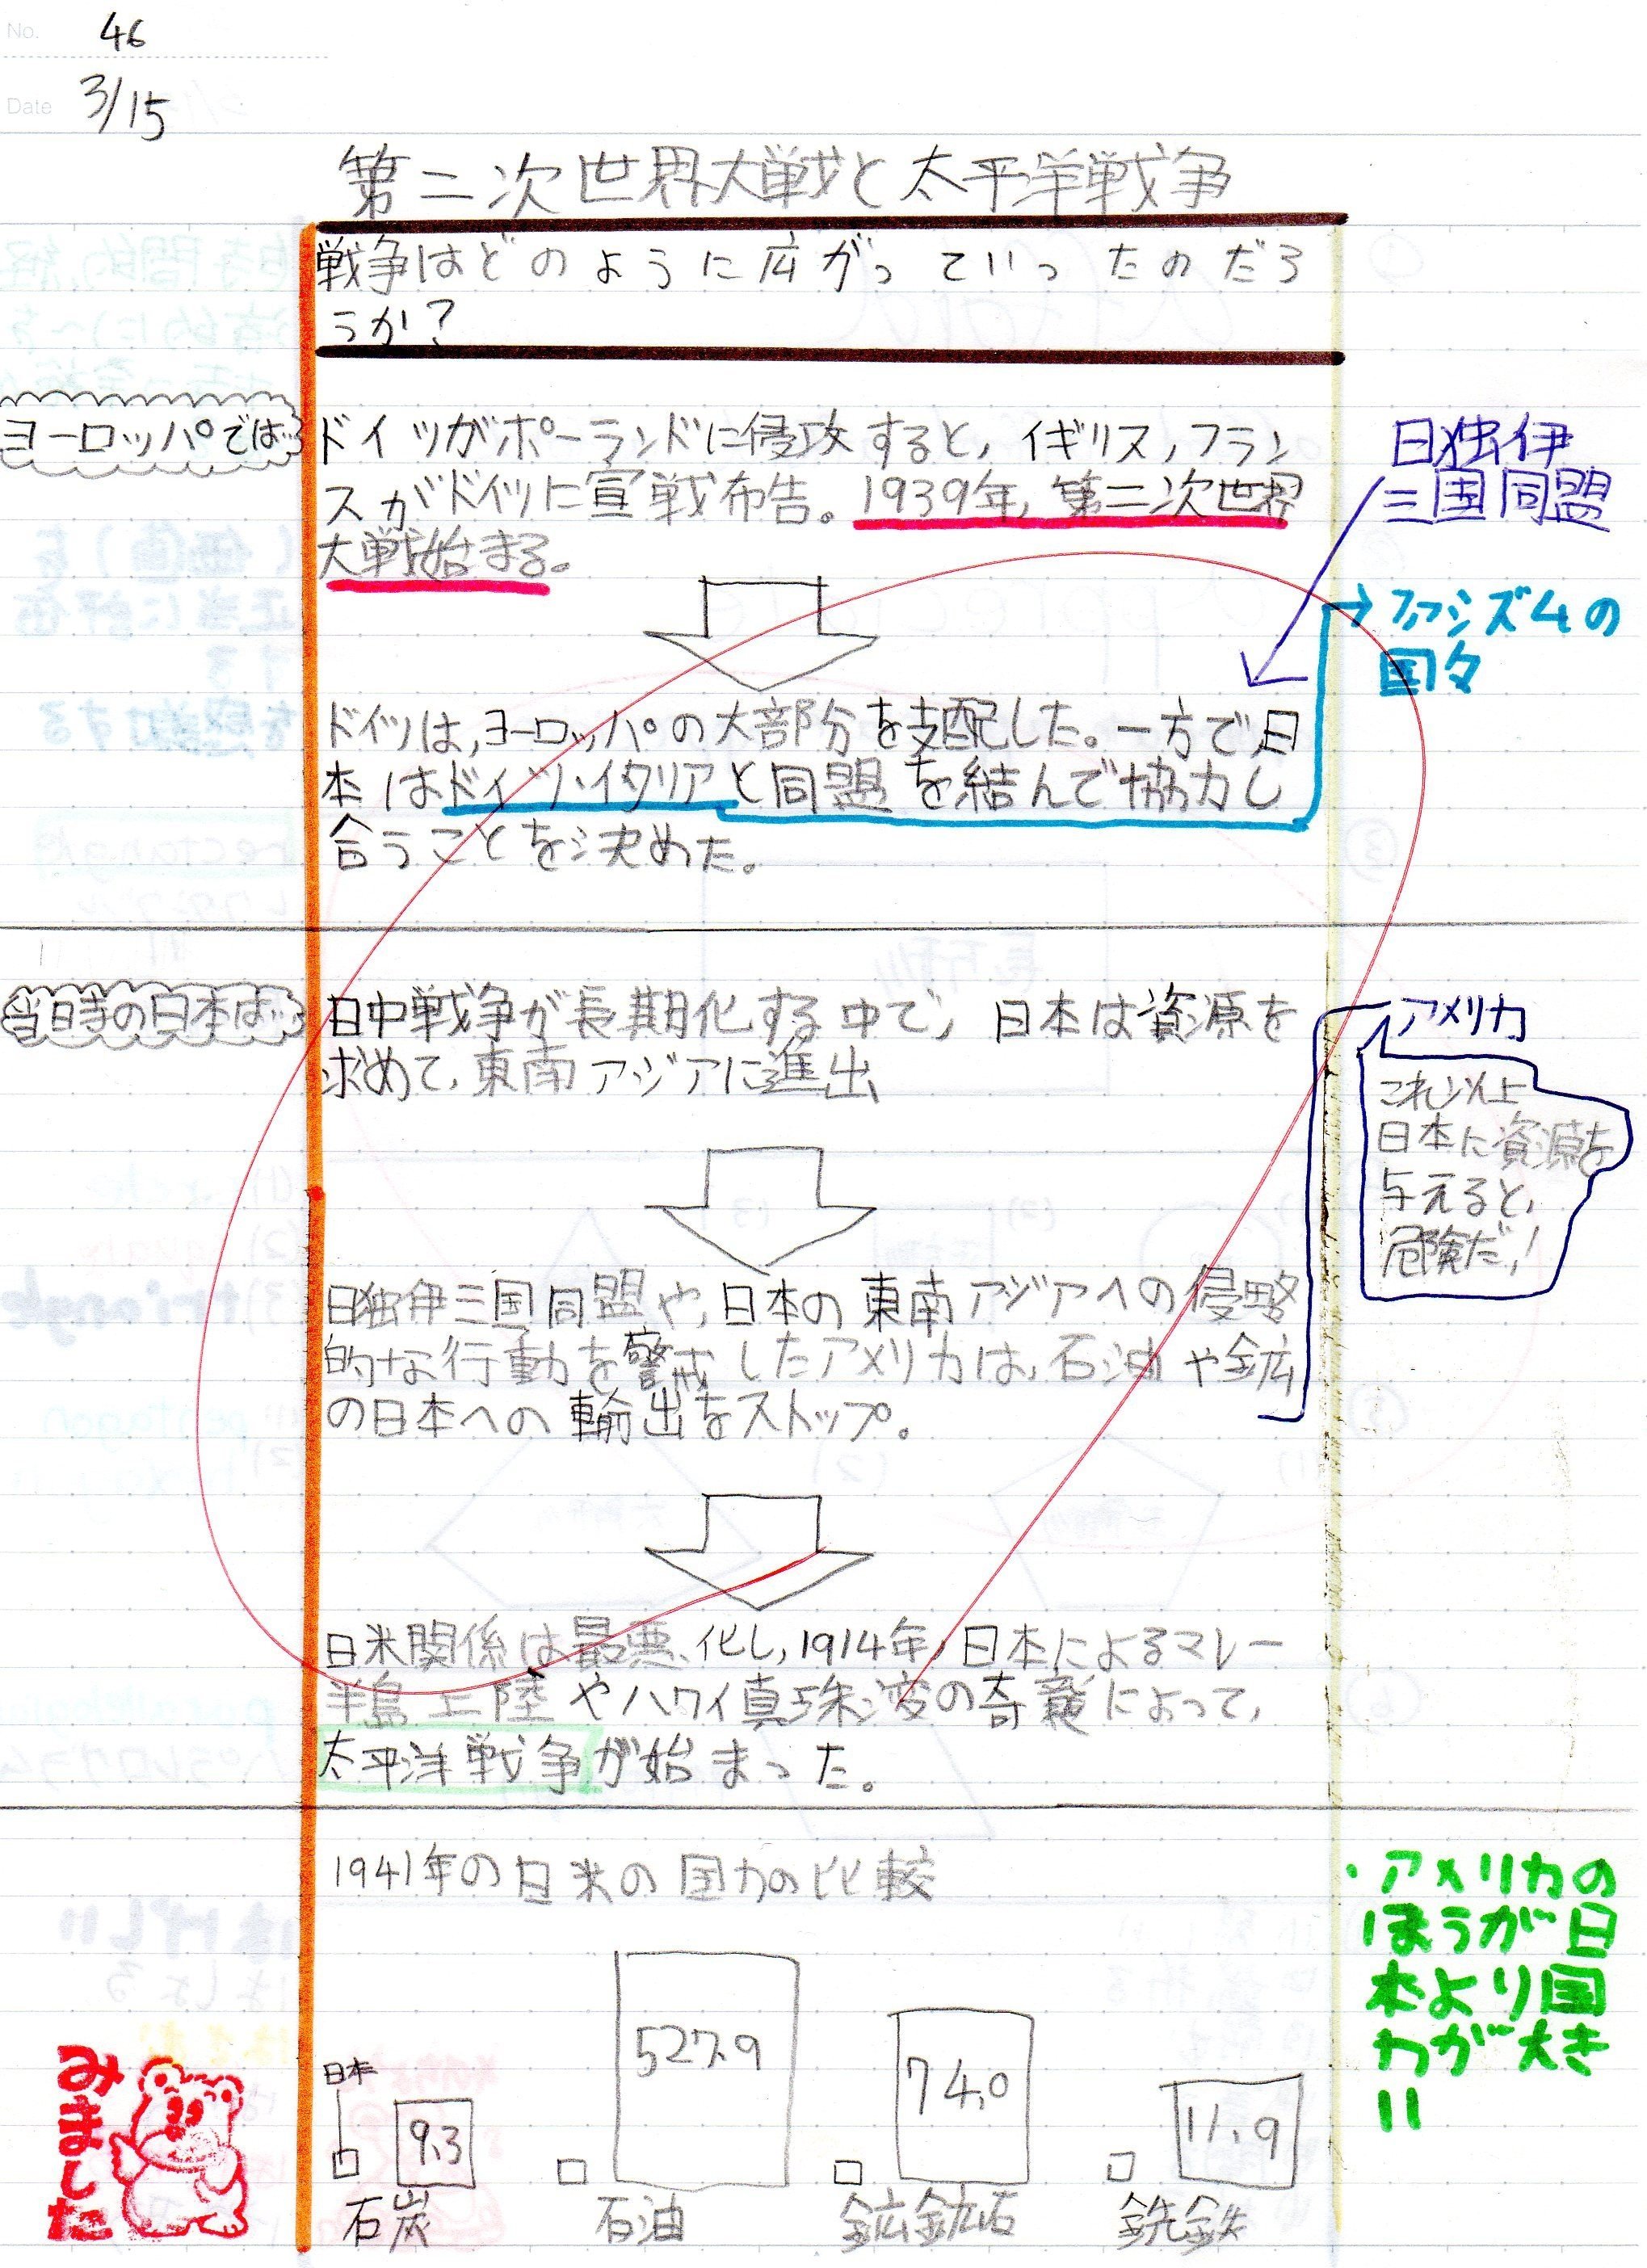 No. 46
Date 3/15
第二次世界大戦と太平洋戦争
戦争はどのように広がっていったのだろ
うか?
ヨーロッパでは…
ドイツがポーランドに侵攻すると,イギリス,フラン
スがドイツに宣戦布告。1939年,第二次世界
大戦始まる。
日独伊
三国同盟
→ファシズムの
国々
ドイツは,ヨーロッパの大部分を支配した。一方で日
本はドイツ・イタリアと同盟を結んで協力し
合うことを決めた。
当時の日本は…
日中戦争が長期化する中で,日本は資源を
求めて,東南アジアに進出
アメリカ
これ以上
日本に資源を
与えると,
危険だ!
日独伊三国同盟や,日本の東南アジアへの侵略
的な行動を警戒したアメリカは,石油や鉱
の日本への輸出をストップ。
日米関係は最悪化し,1914年,日本によるマレー
半島上陸やハワイ真珠湾の奇襲によって,
太平洋戦争が始まった。
1941年の日米の国力の比較
・アメリカの
ほうが日
本より国
力が大き
い
日本
9.3
527.9
74.0
11.9
石炭
石油
鉱鉱石
銑鉄
みました